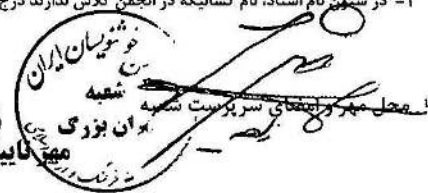 ۲- در ستون نام استاد، نام کسانیکه در انجمن کلاس ندارند درج
خوشنویسان ایران
شعبه
محل مهر و امضای سرپرست شعبه
ان بزرگ
مهر تایید